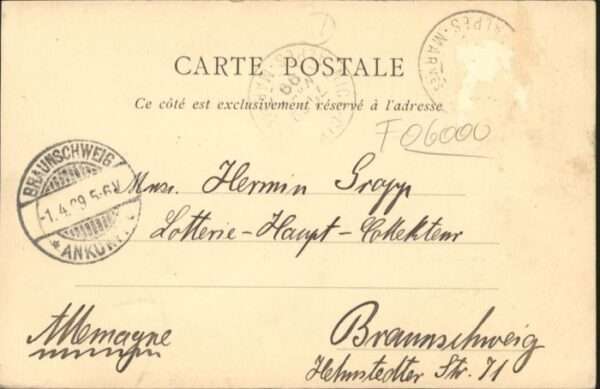 CARTE POSTALE
Ce côté est exclusivement réservé à l'adresse
F06000
ALPES-MAR
BRAUNSCHWEIG
*ANKUNFT
Hermin Gropp
Lotterie-Haupt-Collekteur
Allemagne
Braunschweig
Helmstedter Str. 71